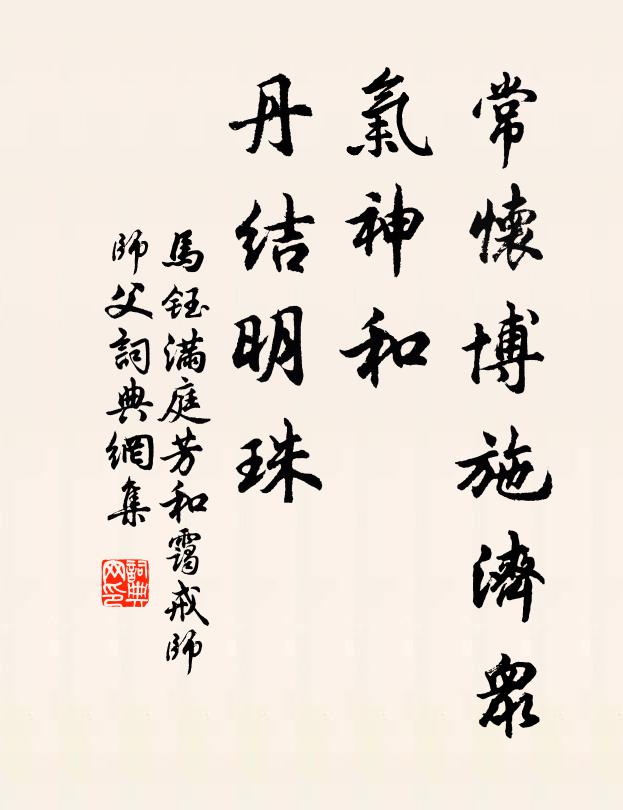 常懷博施濟眾
氣神和
丹結明珠
馬鈺滿庭芳和靄戒師
師父詞典網集
詞典網印